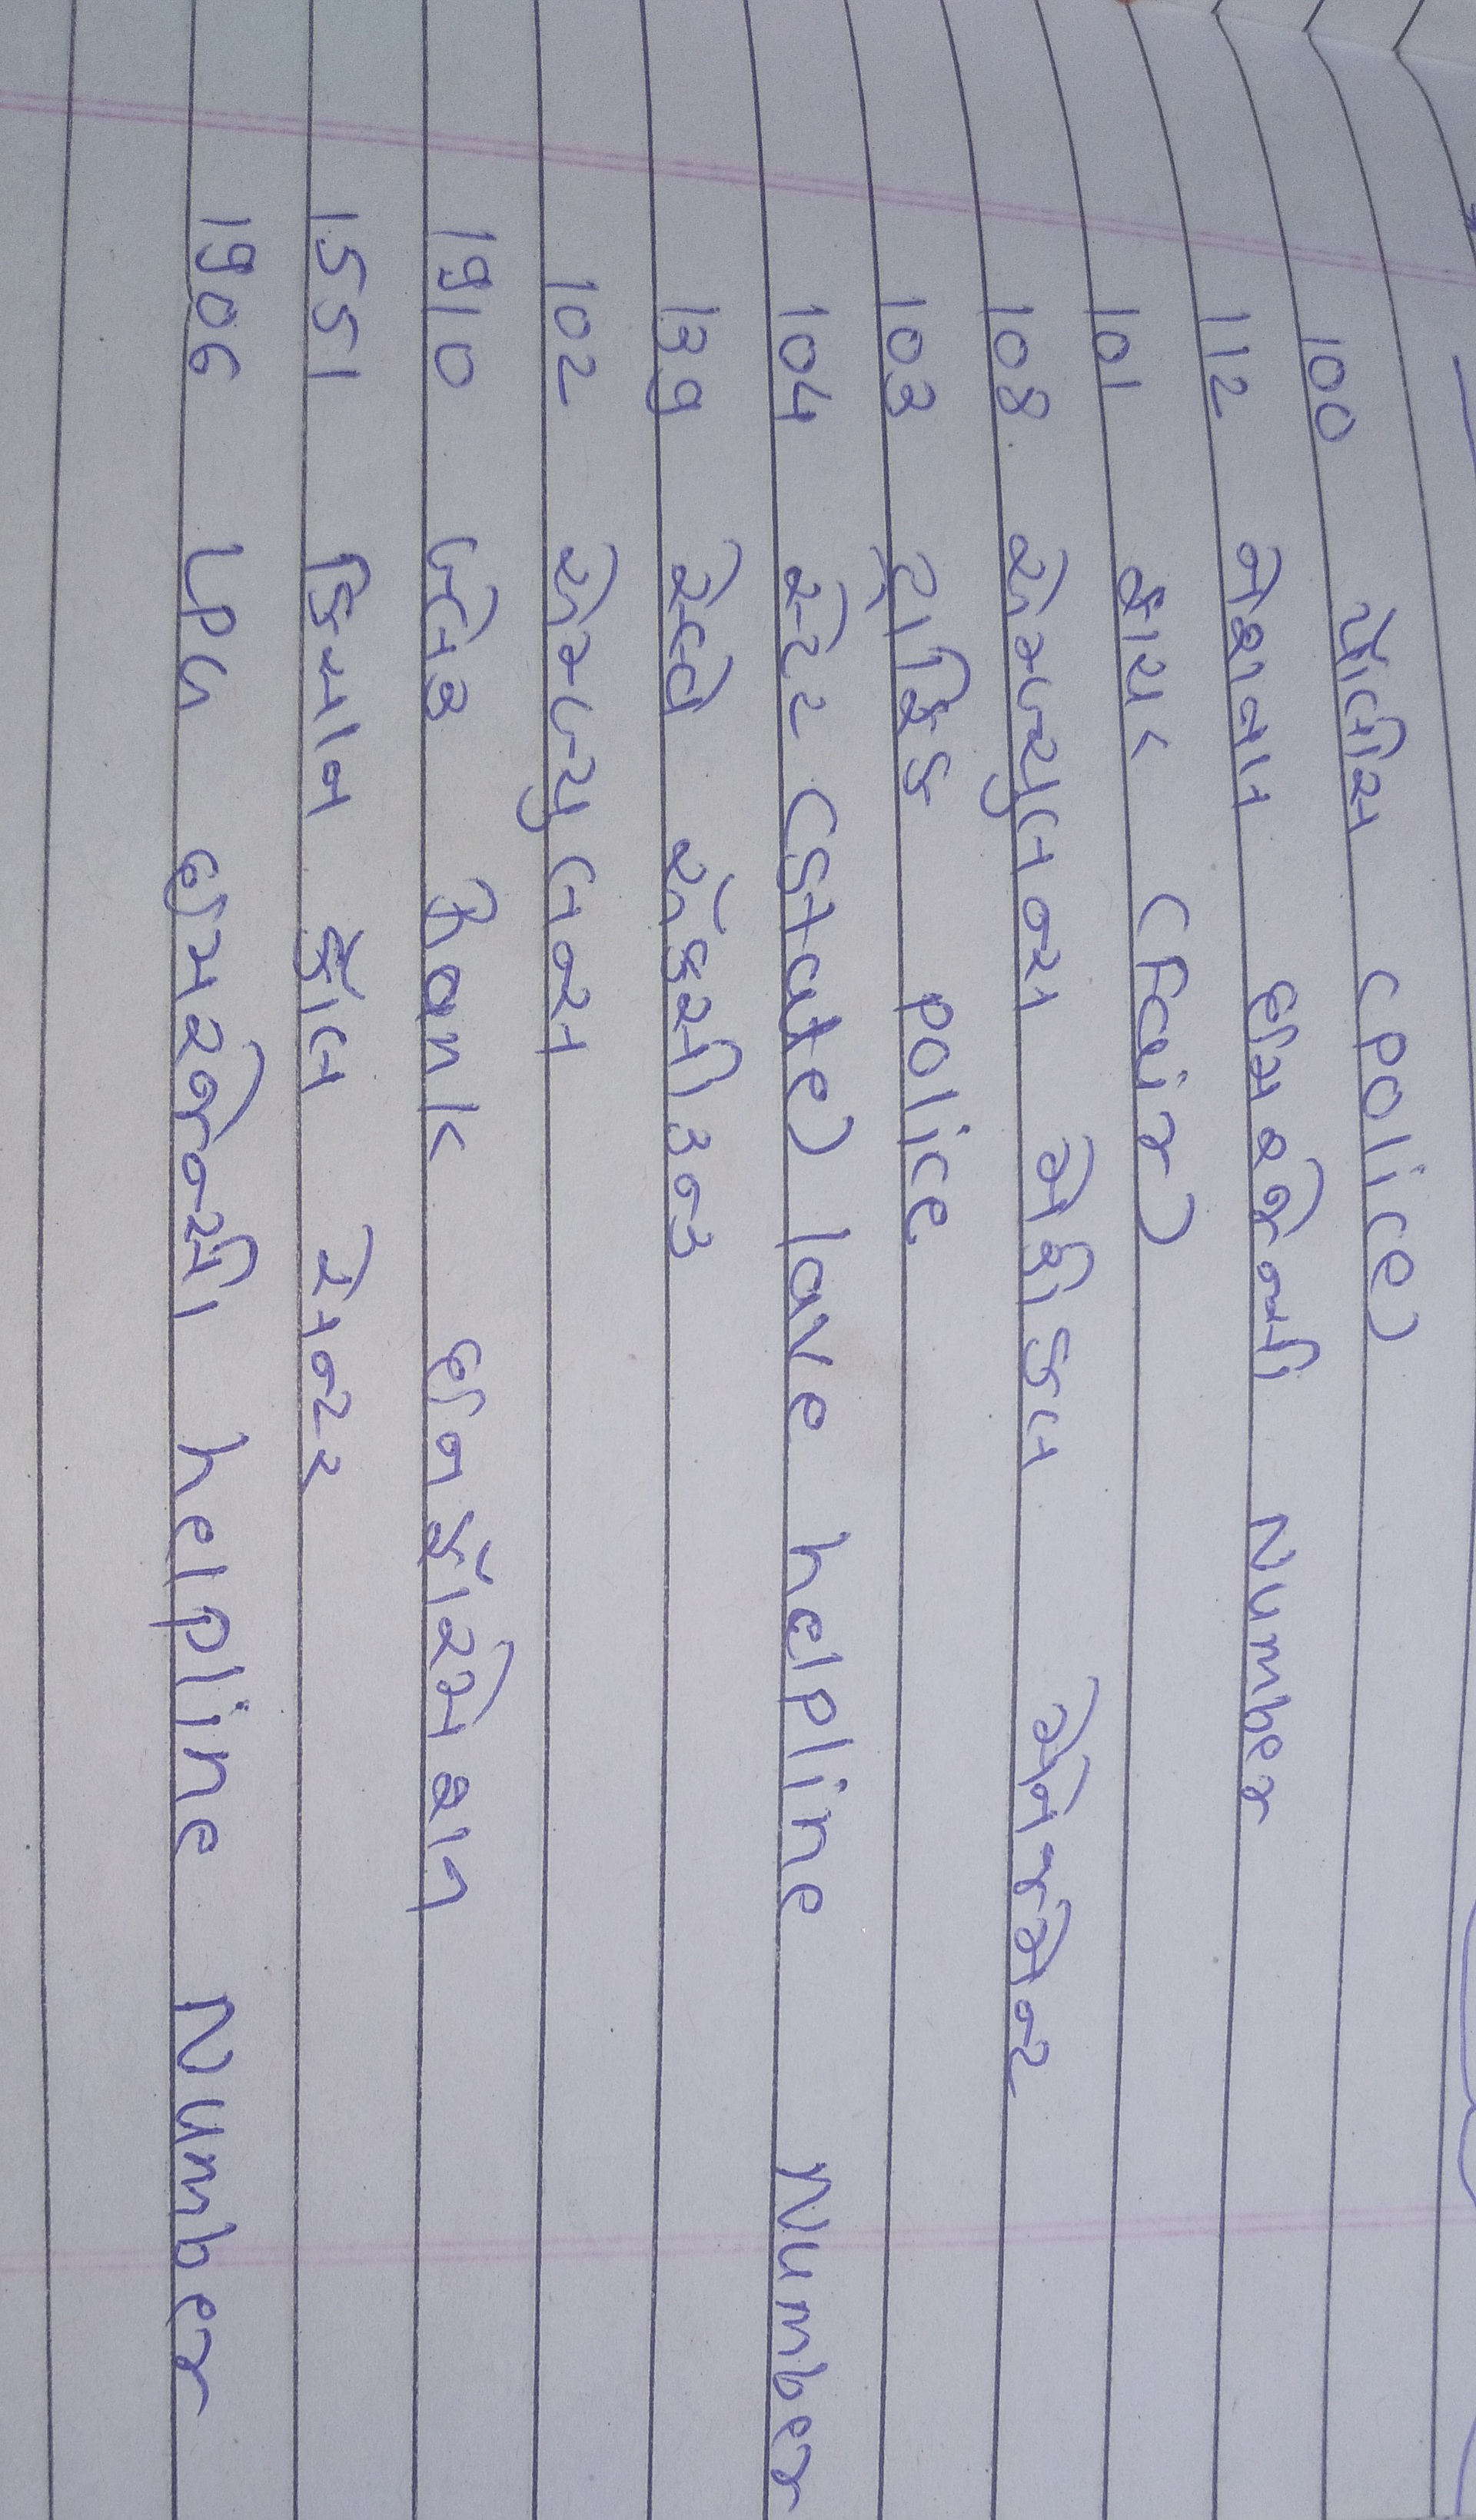 100 પોલીસ (police)
112 નેશનલ ઇમરજન્સી Number
101 ફાયર (Fair)
108 એમ્બ્યુલન્સ મેડીકલ મેનેજમેન્ટ
103 ટ્રાફિક police
104 સ્ટેટ (State) lave helpline Number
139 રેલ્વે એંકવાયરી
102 એમ્બ્યુલન્સ
1910 બ્લડ Bank ઇનફોરમેશન
1551 કિસાન કોલ સેન્ટર
1906 LPG ઇમરજન્સી helpline Number